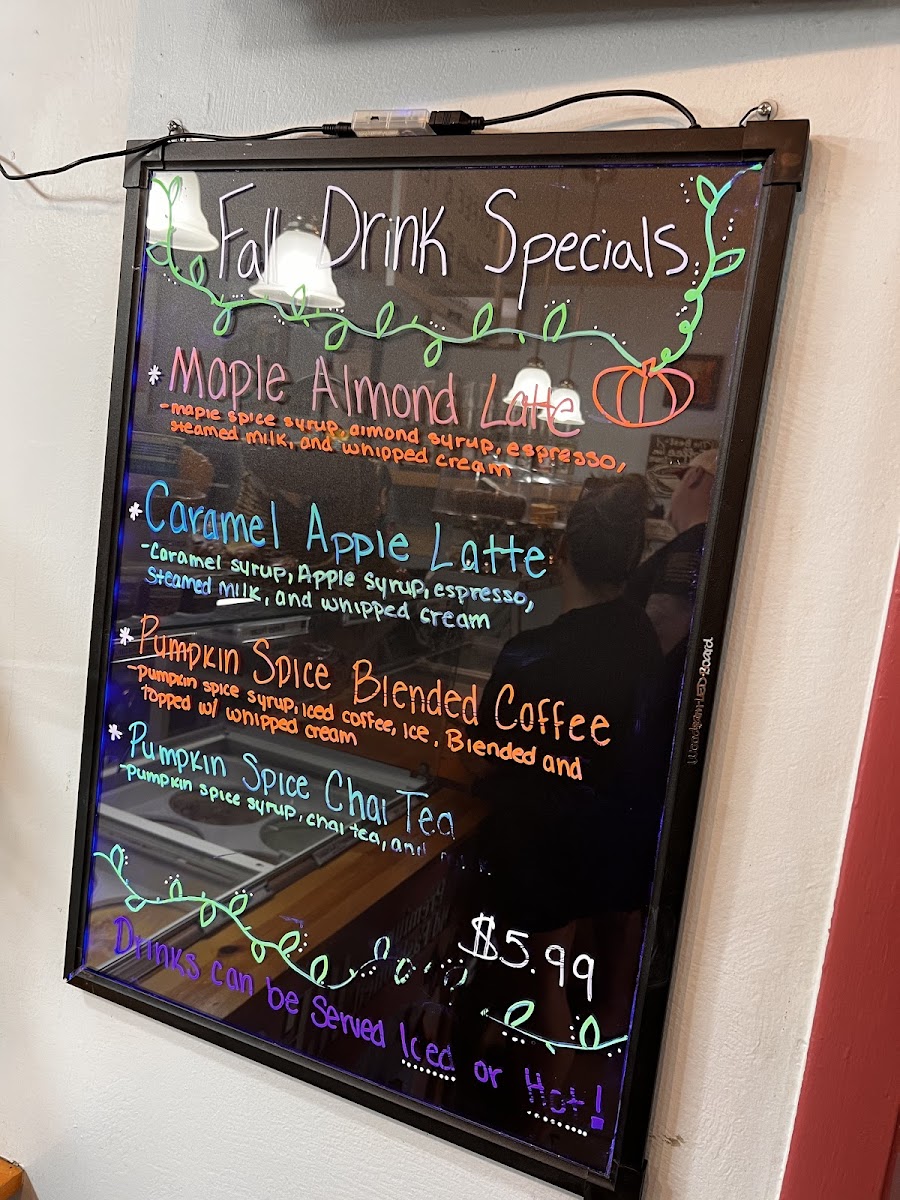 Fall Drink Specials
* Maple Almond Latte
-maple spice syrup, almond syrup, espresso,
steamed milk, and whipped cream
* Caramel Apple Latte
-Caramel syrup, Apple syrup, espresso,
Steamed milk, and whipped cream
* Pumpkin Spice Blended Coffee
-pumpkin spice syrup, iced coffee, ice. Blended and
topped w/ whipped cream
* Pumpkin Spice Chai Tea
-pumpkin spice syrup, chai tea, and
$5.99
Drinks can be Served Iced or Hot!